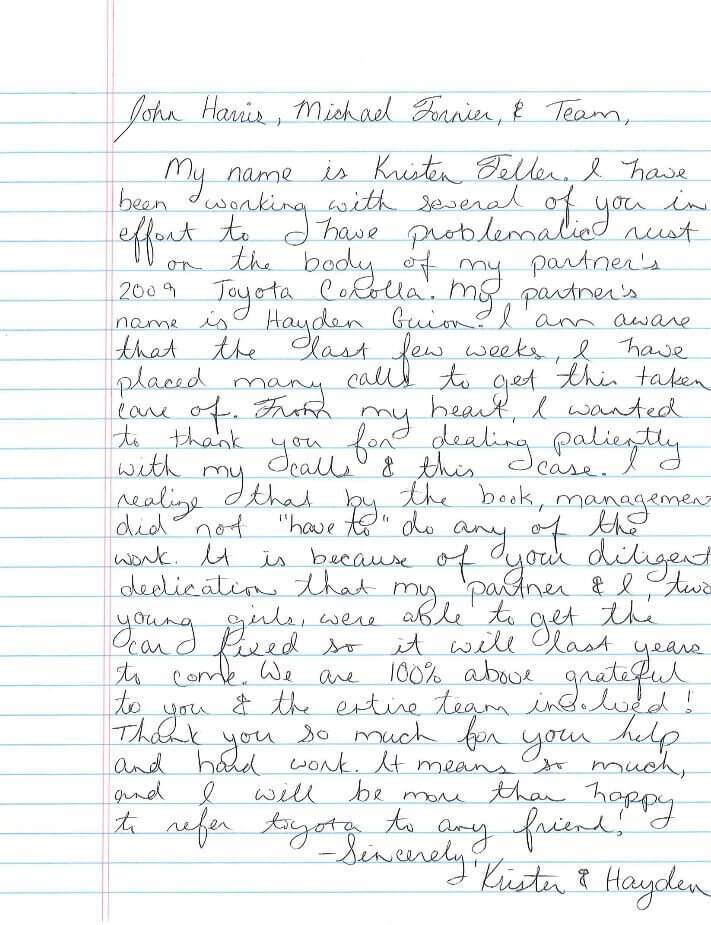 John Harris, Michael Fornier, & Team,
My name is Kristen Feller. I have
been working with several of you in
effort to have problematic rust
on the body of my partner's
2009 Toyota Corolla. My partner's
name is Hayden Guion. I am aware
that the last few weeks, I have
placed many calls to get this taken
care of. From my heart, I wanted
to thank you for dealing patiently
with my calls & this case. I
realize that by the book, managemen
did not "have to" do any of the
work. It is because of your diligent
dedication that my partner & I, two
young girls, were able to get the
car fixed so it will last years
to come. We are 100% above grateful
to you & the entire team involved!
Thank you so much for your help
and hard work. It means so much,
and I will be more than happy
to refer toyota to any friend!
-Sincerely,
Kristen & Hayden